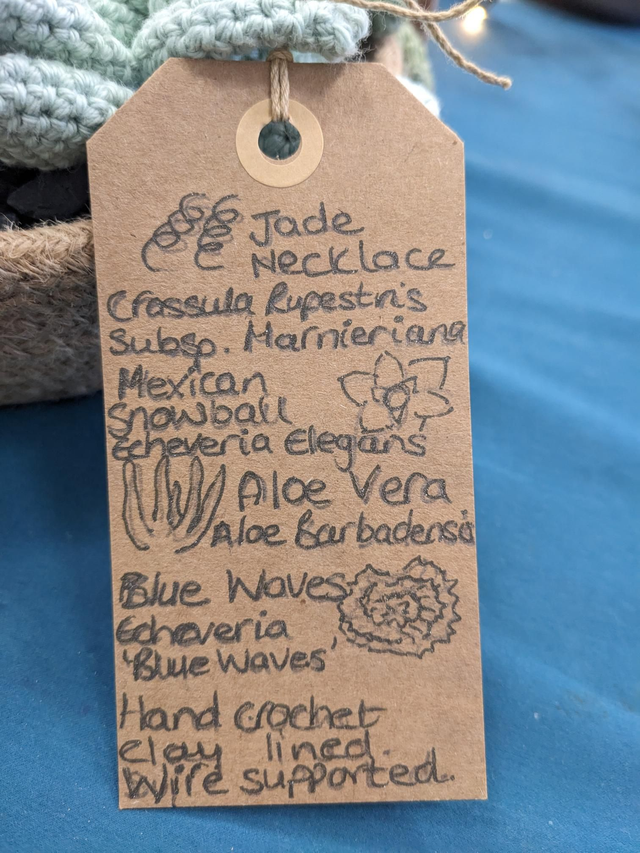 Jade
Necklace
Crassula Rupestris
Subsp. Marnieriana
Mexican
Snowball
Echeveria Elegans
Aloe Vera
Aloe Barbadensis
Blue Waves
Echeveria
'Blue Waves'
Hand crochet
clay lined.
Wire supported.